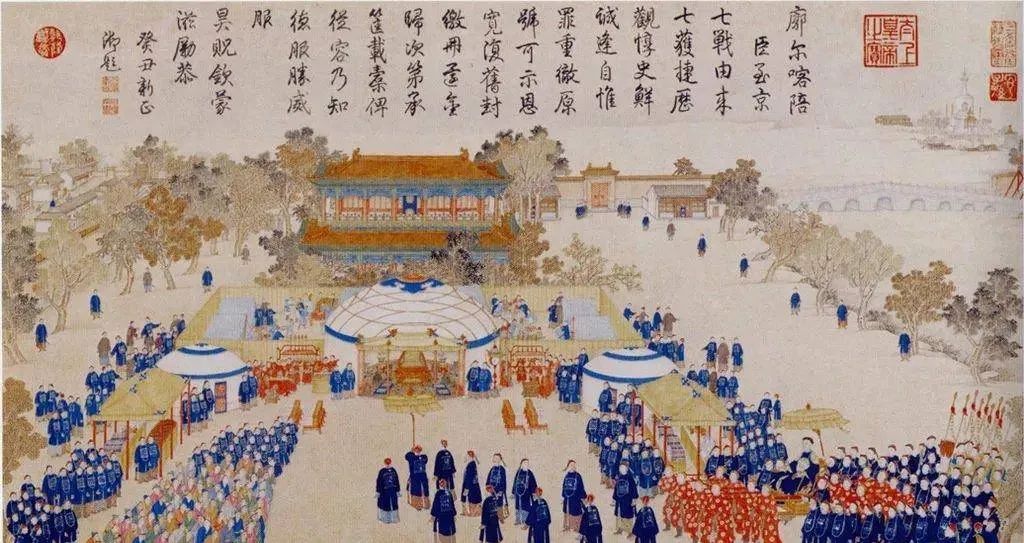 太上皇帝之寶
廓尔喀陪
臣至京
七戰由来
七獲捷歷
觀惇史鮮
誠逢自惟
罪重徹原
號可示恩
寬復舊封
繳冊還金
歸次第承
筐載橐俾
從容乃知
後服勝威
服
昊貺欽蒙
滋勵恭
癸丑新正
御題